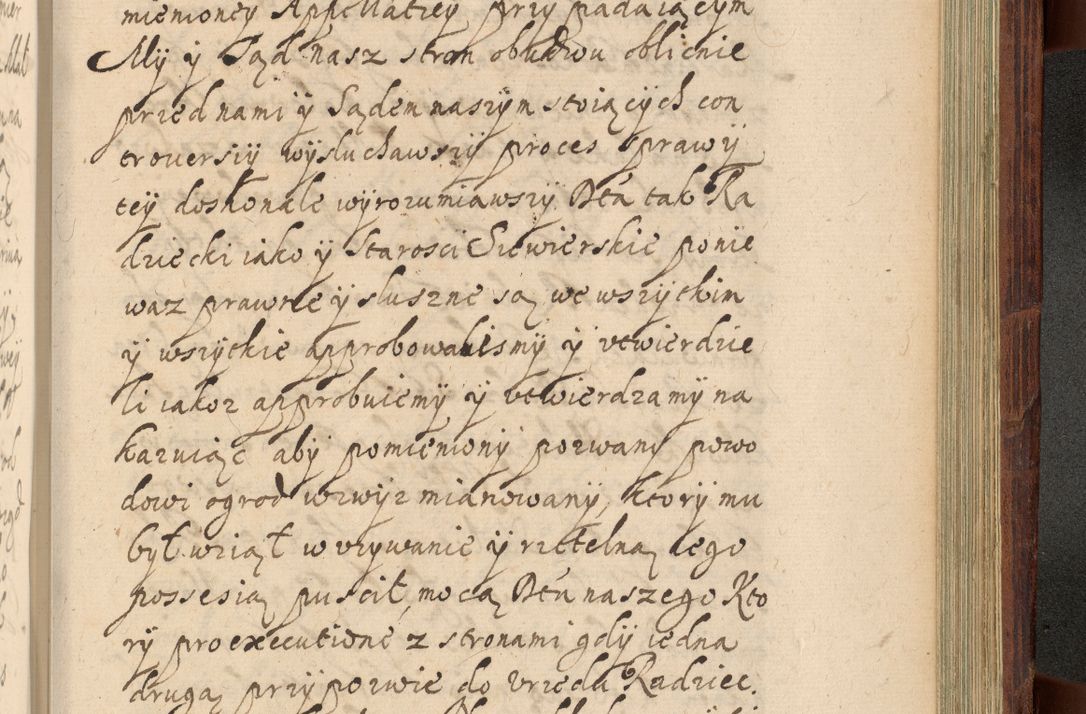 mienioney Appellatiey przypadaiącym
My ÿ Sąd nasz stron obudwu oblicnie
przed nami ÿ Sądem naszym stoiących con
trouersiÿ wÿsłuchawszÿ proces sprawÿ
teÿ doskonale wyrozumiawszÿ Dta tak Ra
dziecki iako ÿ Starosci Siewierskie ponie
waz prawne ÿ słuszne są we wszytkim
ÿ wszytkie approbowalismÿ ÿ vtwierdzie
li iakoz approbuiemÿ ÿ vtwierdzamÿ na
kazuiąc abÿ pomienionÿ pozwanÿ powo
dowi ogrod wzwÿz mianowanÿ, ktorÿ mu
był wziął w vzywanie ÿ rzetelną iego
possesią puscił, mocą Dtu naszego Kto
rÿ pro executione z stronami gdÿ iedna
drugą przypozwie do vrzędu Radziec.